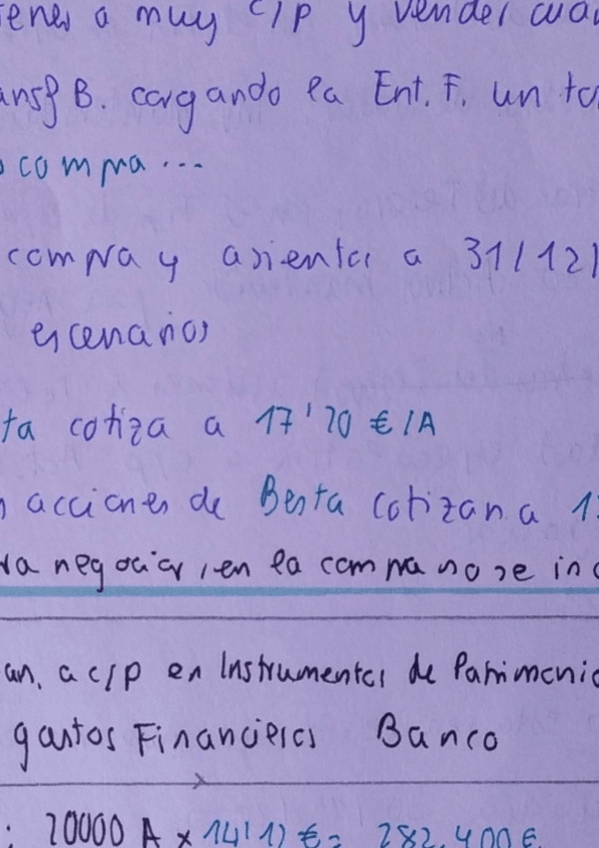 a muy c/p y vender
B. cargando la Ent. F. un
compra...
compra y asientos a 31/12/
escenarios
ta cotiza a 17'20 €/A
acciones de Besta cotizan a 1
negociar, en la compra no se
a c/p en Instrumentos de Patrimonio
gastos Financieros Banco
: 20000 A x 14'12 € = 282.400 €